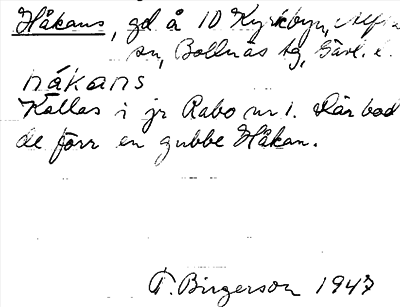 Håkans, gd å 10 Kyrkbyn, Alfta
sn, Bollnäs tg, Gävl. l.
håkans
Kallas i jr Rabo nr 1. Där bod
de förr en gubbe Håkan.
T. Birgerson 1947